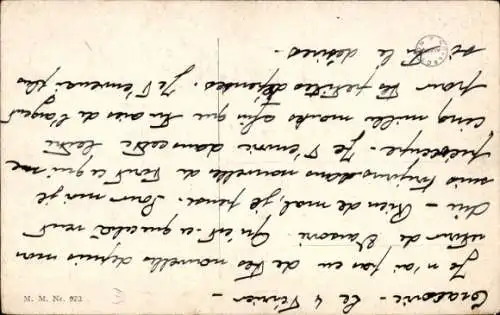 Cracovie - Le 4 Février -
Je n'ai pas eu de tes nouvelles depuis mon
retour de Varsovie. Qu'est-ce que cela veut
dire - Rien de mal, je pense. Pour moi je
suis toujours sans nouvelle de tout ce qui me
préoccupe - Je t'envoie dans cette lettre
cinq mille marks afin que tu aies de l'argent
pour tes petites dépenses. Je t'enverrai plus
si tu le désires.
M. M. Nr.